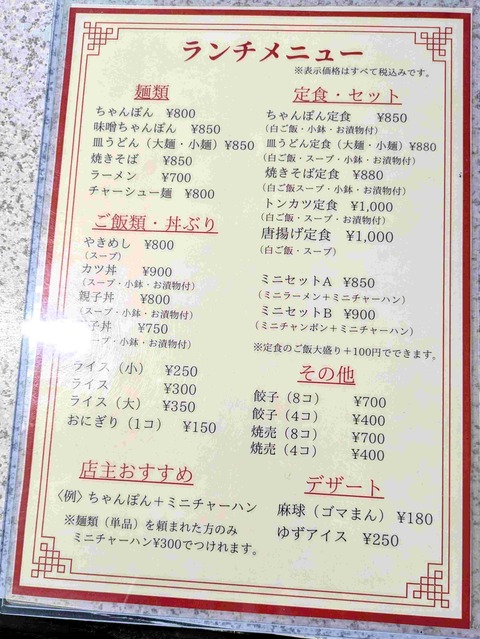 ランチメニュー
※表示価格はすべて税込みです。
麺類
ちゃんぽん ¥800
味噌ちゃんぽん ¥850
皿うどん（大麺・小麺）¥850
焼きそば ¥850
ラーメン ¥700
チャーシュー麺 ¥800
ご飯類・丼ぶり
やきめし ¥800
（スープ）
カツ丼 ¥900
（スープ・小鉢・お漬物付）
親子丼 ¥800
（スープ・小鉢・お漬物付）
子丼 ¥750
スープ・小鉢・お漬物付）
ライス（小） ¥250
ライス ¥300
ライス（大） ¥350
おにぎり（1コ） ¥150
店主おすすめ
〈例〉ちゃんぽん＋ミニチャーハン
※麺類（単品）を頼まれた方のみ
ミニチャーハン¥300でつけれます。
定食・セット
ちゃんぽん定食 ¥850
（白ご飯・小鉢・お漬物付）
皿うどん定食（大麺・小麺）¥880
（白ご飯・スープ・小鉢・お漬物付）
焼きそば定食 ¥880
（白ご飯スープ・小鉢・お漬物付）
トンカツ定食 ¥1,000
（白ご飯・スープ・小鉢・お漬物付）
唐揚げ定食 ¥1,000
（白ご飯・スープ）
ミニセットA ¥850
（ミニラーメン＋ミニチャーハン）
ミニセットB ¥900
（ミニチャンポン＋ミニチャーハン）
※定食のご飯大盛り＋100円でできます。
その他
餃子（8コ） ¥700
餃子（4コ） ¥400
焼売（8コ） ¥700
焼売（4コ） ¥400
デザート
麻球（ゴマまん）¥180
ゆずアイス ¥250